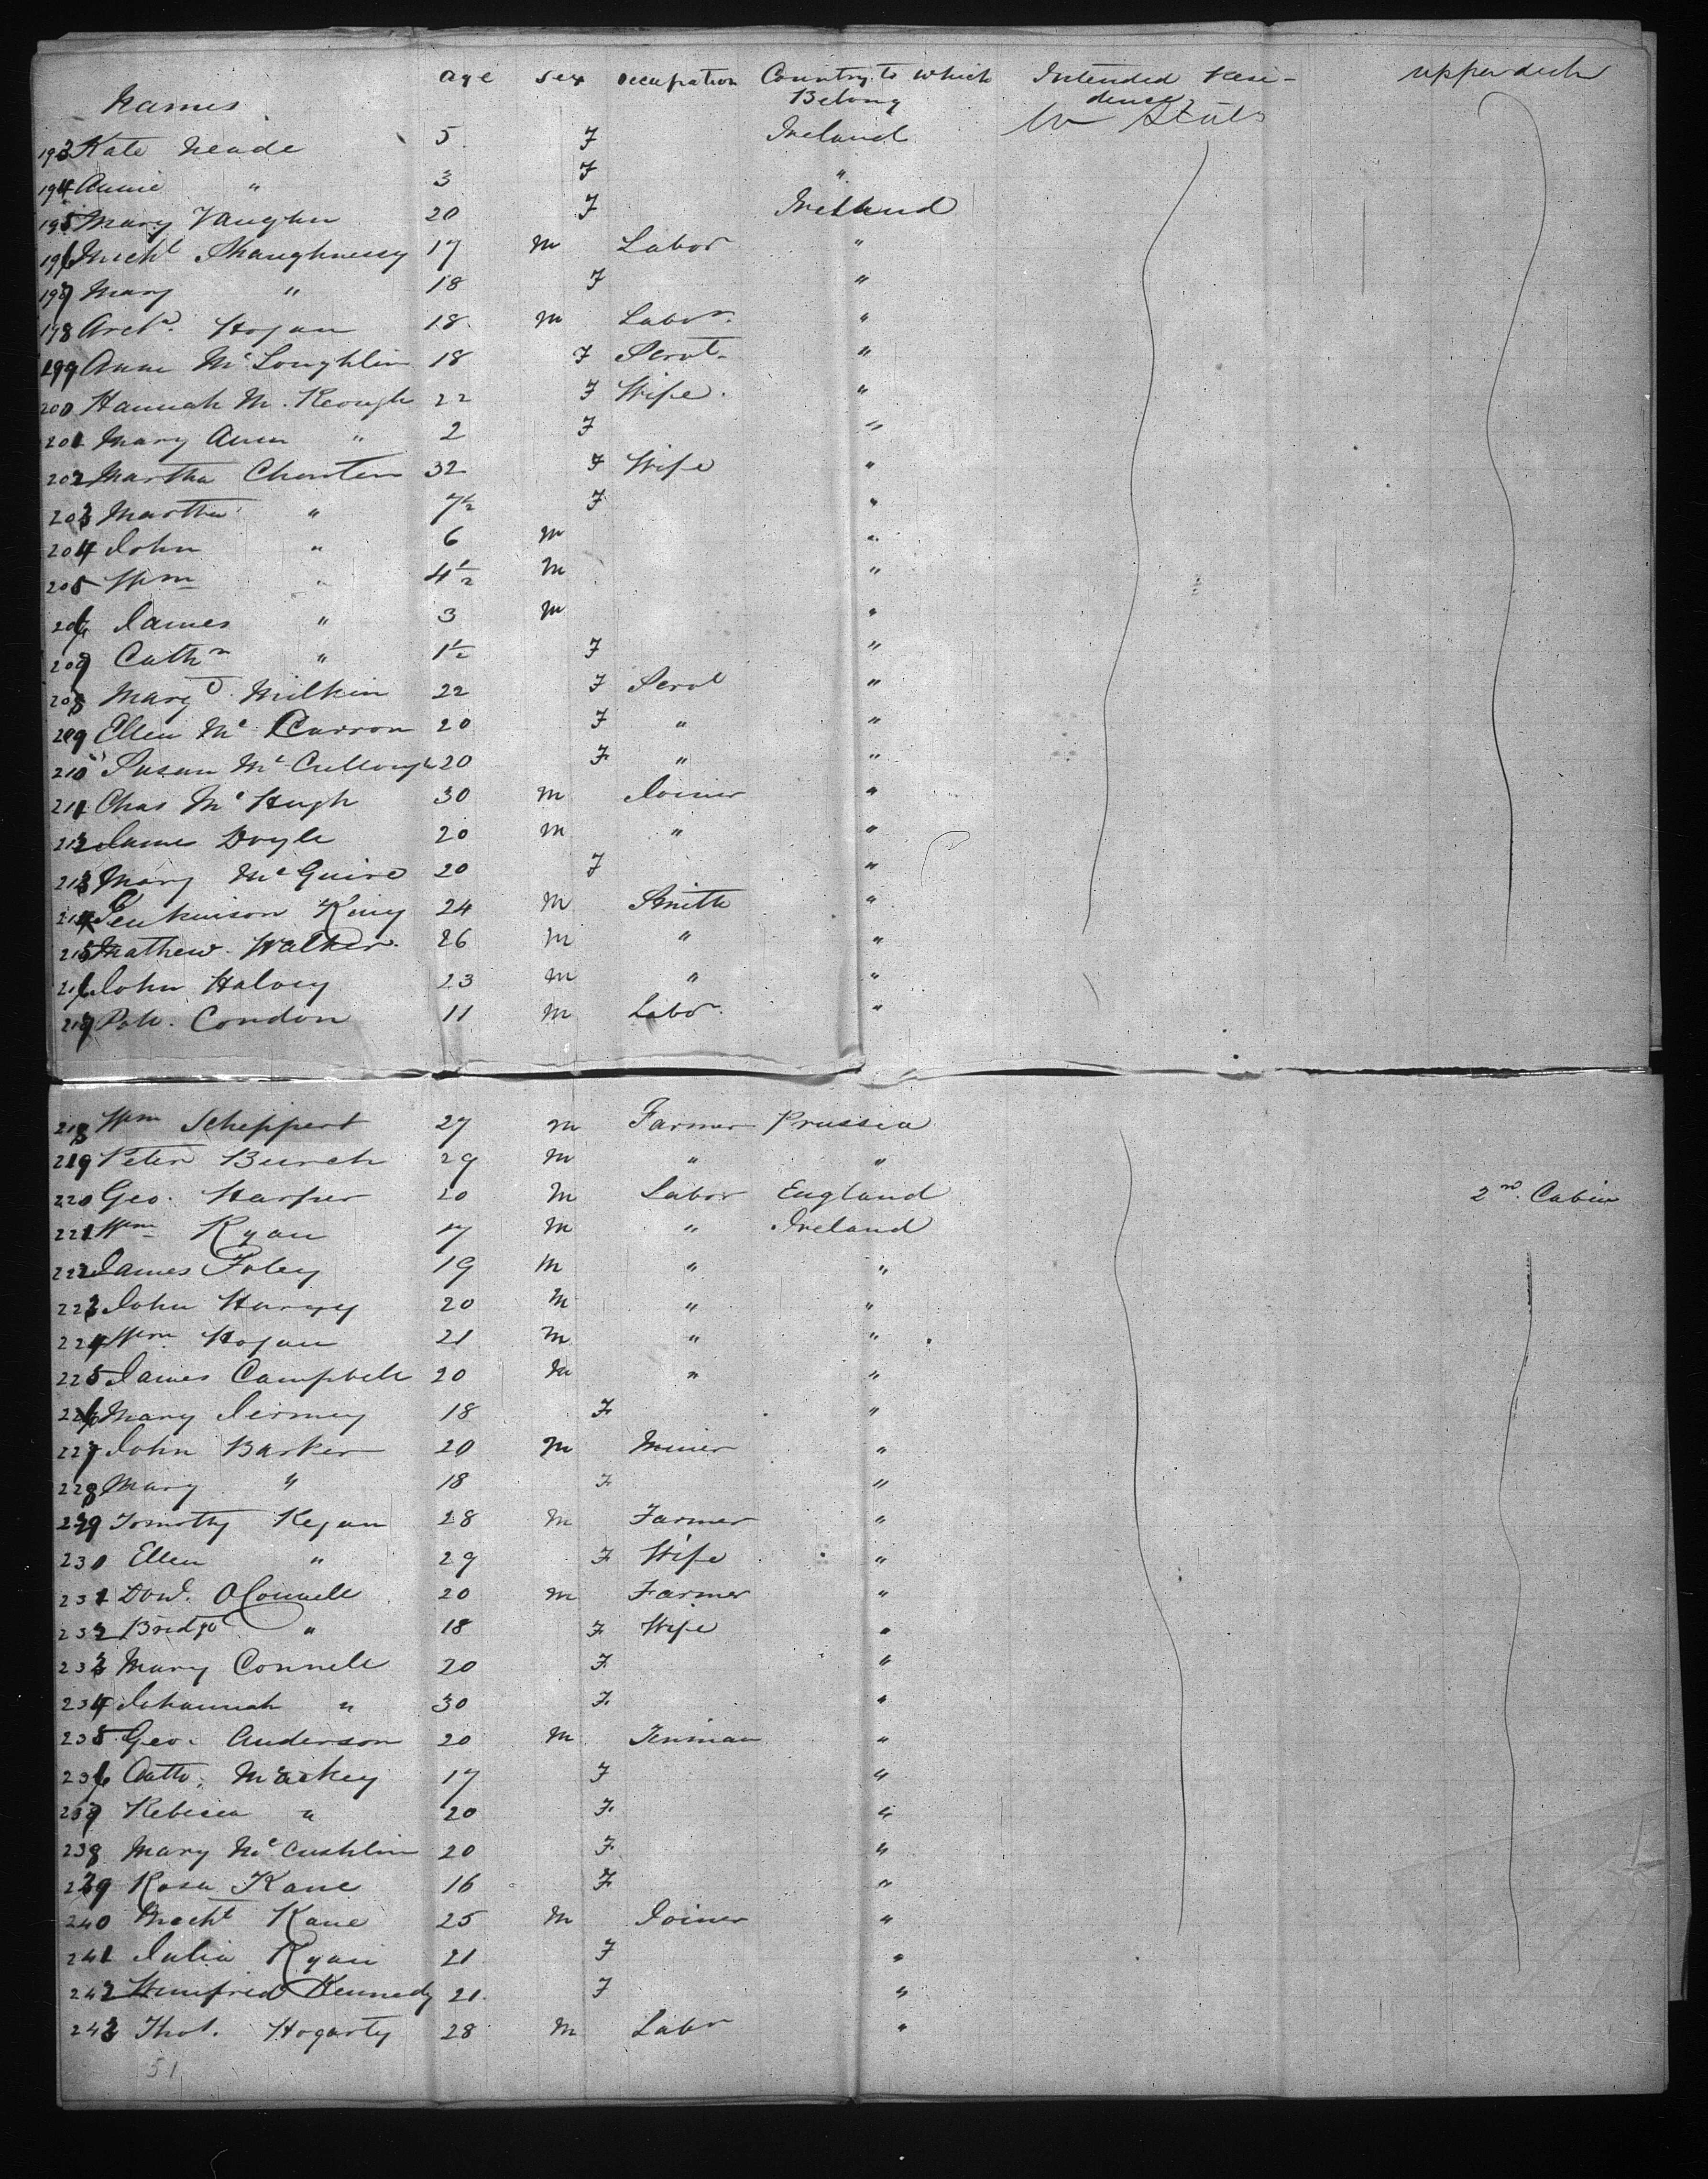 Names age sex occupation Country to which Belong Intended Resi-dence upper deck
193 Kate Meade 5 F Ireland U States
194 Annie " 3 F "
195 Mary Vaughn 20 F Ireland
196 Michl Shaughnessy 17 M Labor "
197 Mary " 18 F "
198 Hogan 18 M Labor "
199 Anne McLoughlin 18 F Servt "
200 Hannah M. Keough 22 F Wife "
201 Mary Ann " 2 F "
202 Martha 32 F Wife "
203 Martha " 7½ F "
204 John " 6 M "
205 Wm " 4½ M "
206 James " 3 M "
207 Cathn " 1½ F "
208 Margt Milkin 22 F Servt "
209 Ellen Mc Carron 20 F " "
210 Susan McCullough 20 F " "
211 Chas McHugh 30 M Joiner "
212 James Doyle 20 M " "
213 Mary McGuire 20 F "
214 Jenkinson King 24 M Smith "
215 Mathew Walker 26 M " "
216 John Halvey 23 M " "
217 Patk. Condon 11 M Labor "
218 Wm Scheppert 27 M Farmer Prussia
219 Peter Bunch 29 M " "
220 Geo. Harper 20 M Labor England 2nd Cabin
221 Wm Ryan 17 M " Ireland
222 James Foley 19 M " "
223 John 20 M " "
224 Wm Hogan 21 M " "
225 James Campbell 20 M " "
226 Mary 18 F "
227 John Barker 20 M Miner "
228 Mary " 18 F "
229 Timothy Regan 28 M Farmer "
230 Ellen " 29 F Wife "
231 OConnell 20 M Farmer "
232 Bridgt " 18 F Wife "
233 Mary Connell 20 F "
234 Johannah " 30 F "
235 Geo. Anderson 20 M Tinman "
236 Cath. Mackey 17 F "
237 Rebecca " 20 F "
238 Mary McCushlin 20 F "
239 Rosa Kane 16 F "
240 Michl Kane 25 M Joiner "
241 Julia Ryan 21 F "
242 Winifred Kennedy 21 F "
243 Thos. Hogarty 28 M Labr "
51